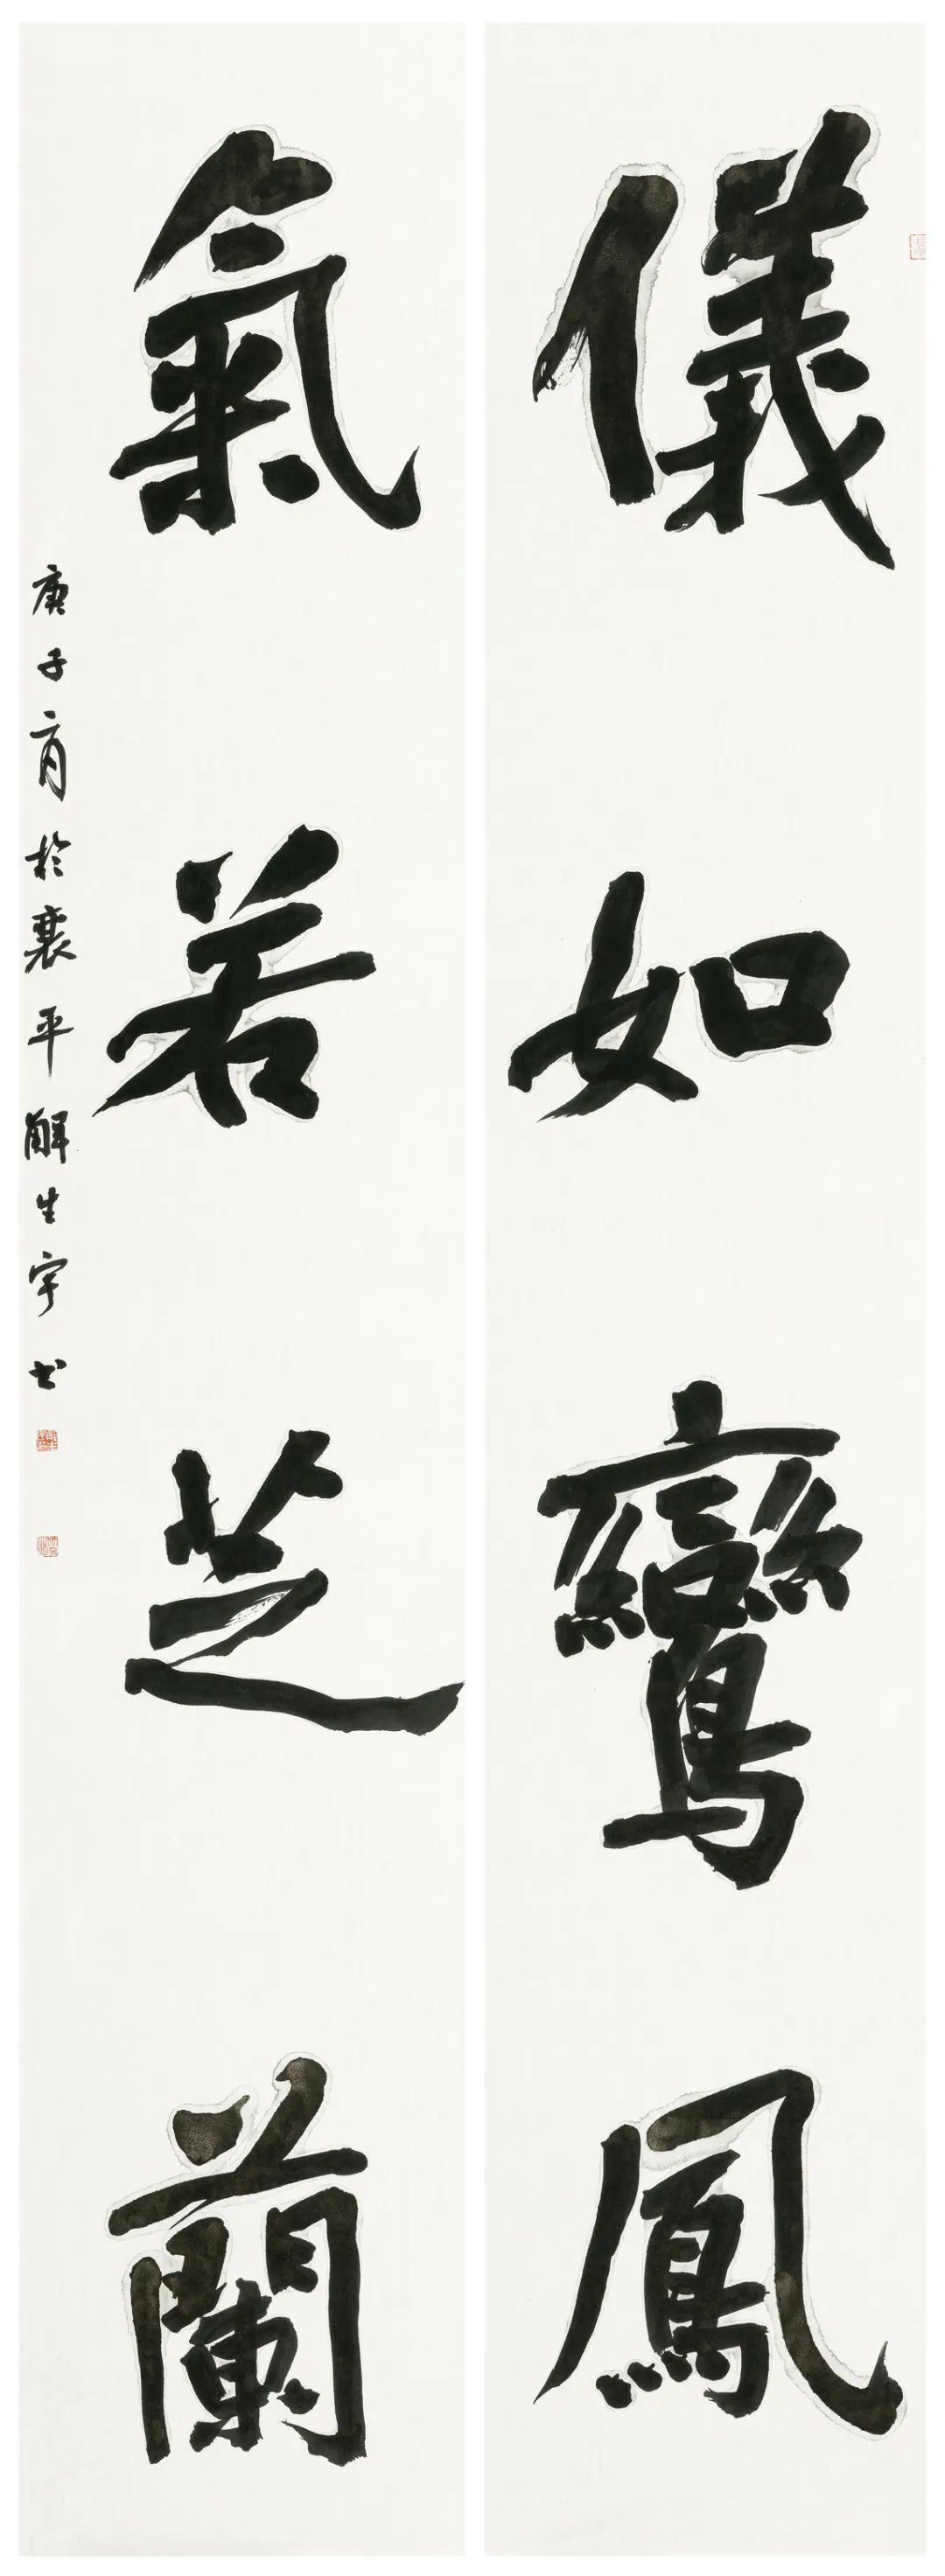 儀如鸞鳳
氣若芝蘭
庚子肓於襄平解生宇书